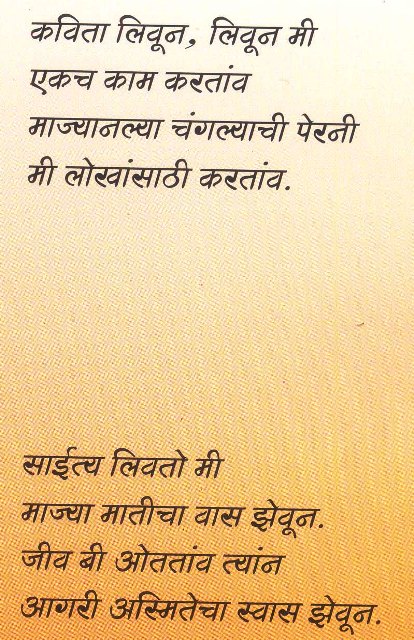 कविता लिवून, लिवून मी
एकच काम करतांव
माज्यानल्या चंगल्याची पेरनी
मी लोखांसाठी करतांव.
साईत्य लिवतो मी
माज्या मातीचा वास झेवून.
जीव बी ओततांव त्यांन
आगरी अस्मितेचा स्वास झेवून.